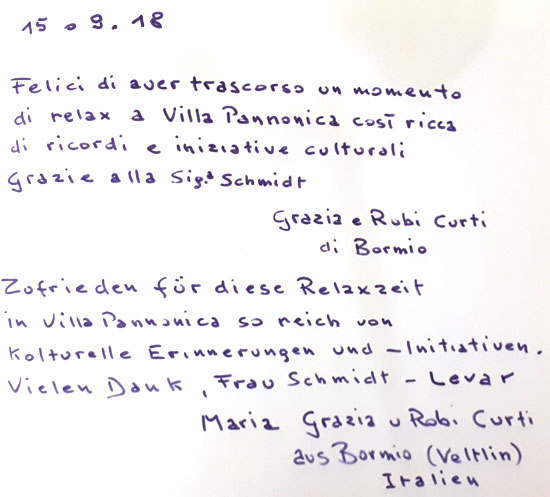 15.9.18
Felici di aver trascorso un momento
di relax a Villa Pannonica così ricca
di ricordi e iniziative culturali
Grazie alla Sig.a Schmidt
Grazia e Robi Curti
di Bormio
Zufrieden für diese Relaxzeit
in Villa Pannonica so reich von
Kolturelle Erinnerungen und -Initiativen.
Vielen Dank, Frau Schmidt - Levar
Maria Grazia u Robi Curti
aus Bormio (Veltlin)
Italien